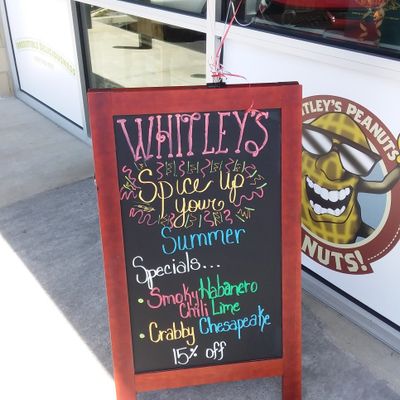 WHITLEY'S
Spice Up
your
Summer
Specials...
• Smoky Habanero
Chili Lime
• Crabby Chesapeake
15% off
HITLEY'S PEANUTS
PEANUTS!